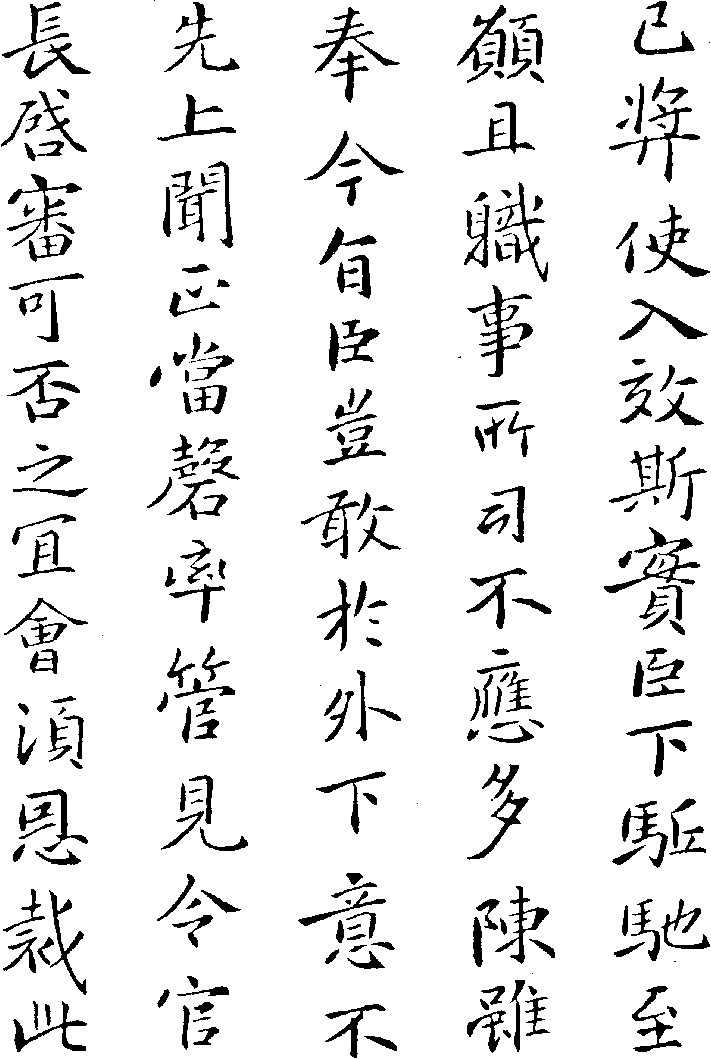 已弊使入效斯實臣下駈馳至
願且職事所司不應多陳雖
奉今旨臣豈敢於外下意不
先上聞正當罄率管見令官
長啓審可否之宜會須恩裁此